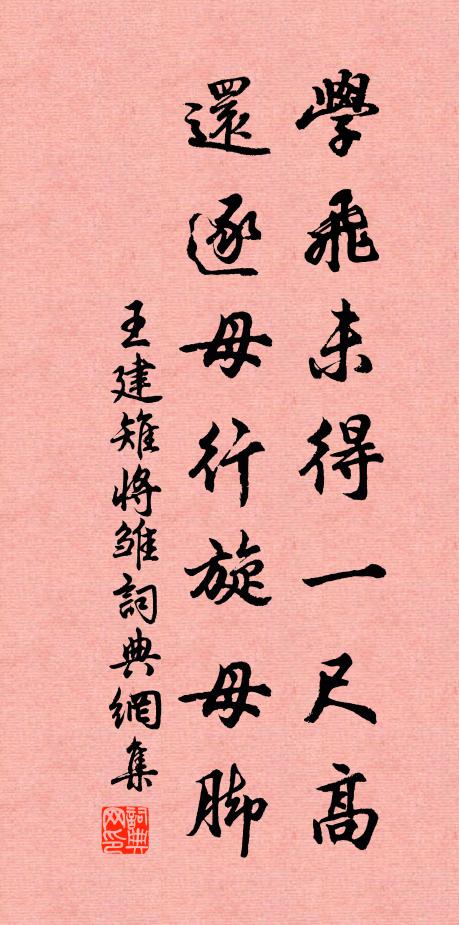 學飛未得一尺高
還逐母行旋母脚
王建雉將雏詞典網集
詞典网印